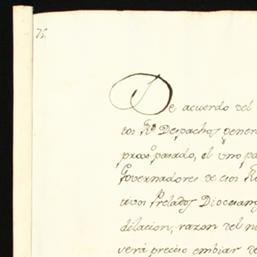 72.
De acuerdo del
los Rs. Despachos gener
proxo pasado, el uno pa
Governadores de esos R
unos Prelados Diocesan
dilacion, razon del n
verá preciso embiar de